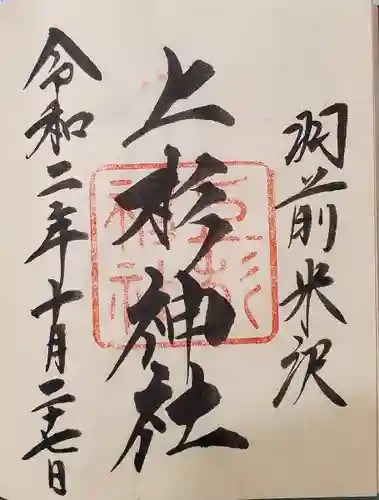 羽前米沢
上杉神社
令和二年十月二十七日
上杉神社